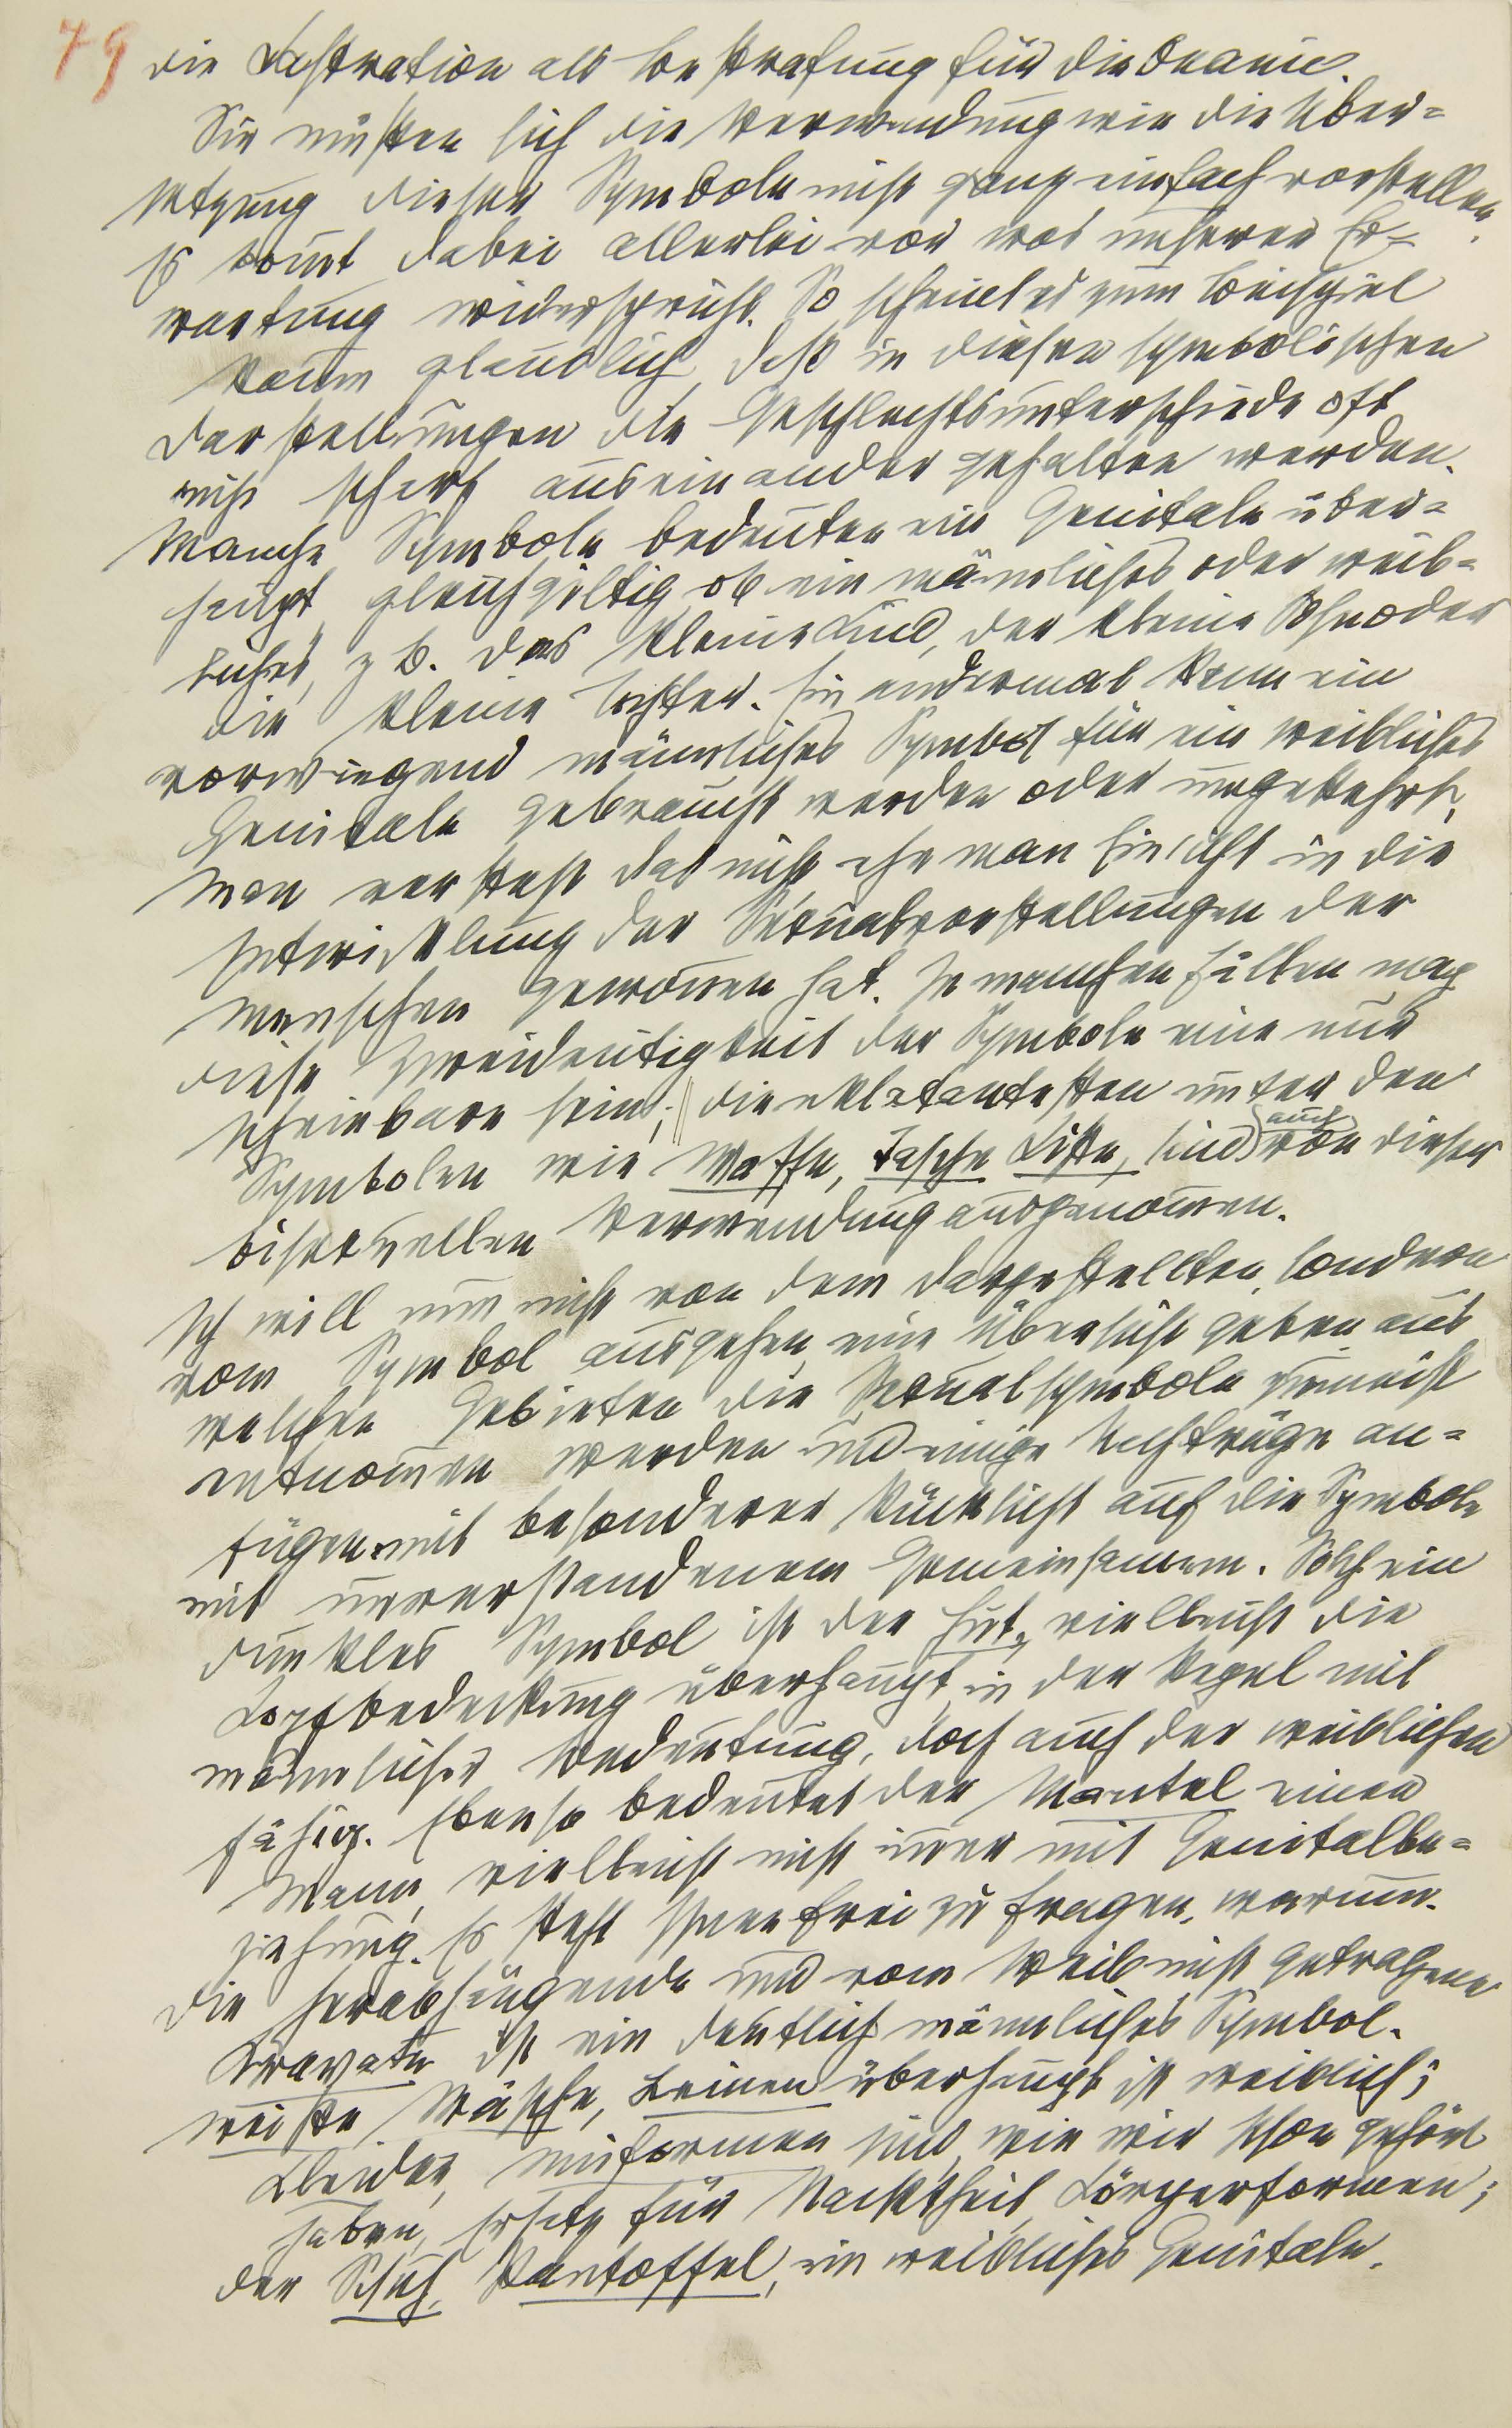 79
die Kastration als Bestrafung für die Onanie.
Sie müßten sich die Verwendung wie die Über=
setzung dieser Symbole nicht ganz einfach vorstellen.
Es kom̄t dabei allerlei vor was unserer Er=
wartung widerspricht. So scheint es zum Beispiel
kaum glaublich, daß in diesen symbolischen
Darstellungen die Geschlechtsunterschiede oft
nicht scharf auseinander gehalten werden.
Manche Symbole bedeuten ein Genitale über=
haupt, gleichgiltig, ob ein mäñliches oder weib=
liches, z B. das kleine Kind, der kleine Sohn oder
die kleine Tochter. Ein andermal kann ein
vorwiegend mäñliches Symbol für ein weibliches
Genitale gebraucht werden oder umgekehrt.
Man versteht das nicht ehe man Einsicht in die
Entwicklung der Sexualvorstellungen der
Menschen gewoñen hat. In manchen Fällen mag
diese Zweideutigkeit der Symbole eine nur
scheinbare sein; die eklatantesten unter den
Symbolen wie Waffe, Tasche Kiste, sind auch von dieser
bisexuellen Verwendung ausgenom̄en.
Ich will nun nicht von dem Dargestellten, sondern
vom Symbol ausgehen, eine Übersicht geben, aus
welchen Gebieten die Sexualsymbole zumeist
entnom̄en werden und einige Nachträge an=
fügen mit besonderer Rücksicht auf die Symbole
mit unverstandenem Gemeinsamem. Solch ein
dunkles Symbol ist der Hut, vielleicht die
Kopfbedeckung überhaupt, in der Regel mit
mäñlicher Bedeutung, doch auch der weiblichen
fähig. Ebenso bedeutet der Mantel einen
Mann, vielleicht nicht im̄er mit Genitalbe=
ziehung. Es steht Ihnen frei zu fragen, warum.
Die herabhängende und vom Weib nicht getragene
Kravate ist ein deutlich mäñliches Symbol.
weiße Wäsche, Leinen überhaupt ist weiblich;
Kleider, Uniformen sind, wie wir schon gehört
haben, Ersatz für Nacktheit, Körperformen;
der Schuh, Pantoffel, ein weibliches Genitale.